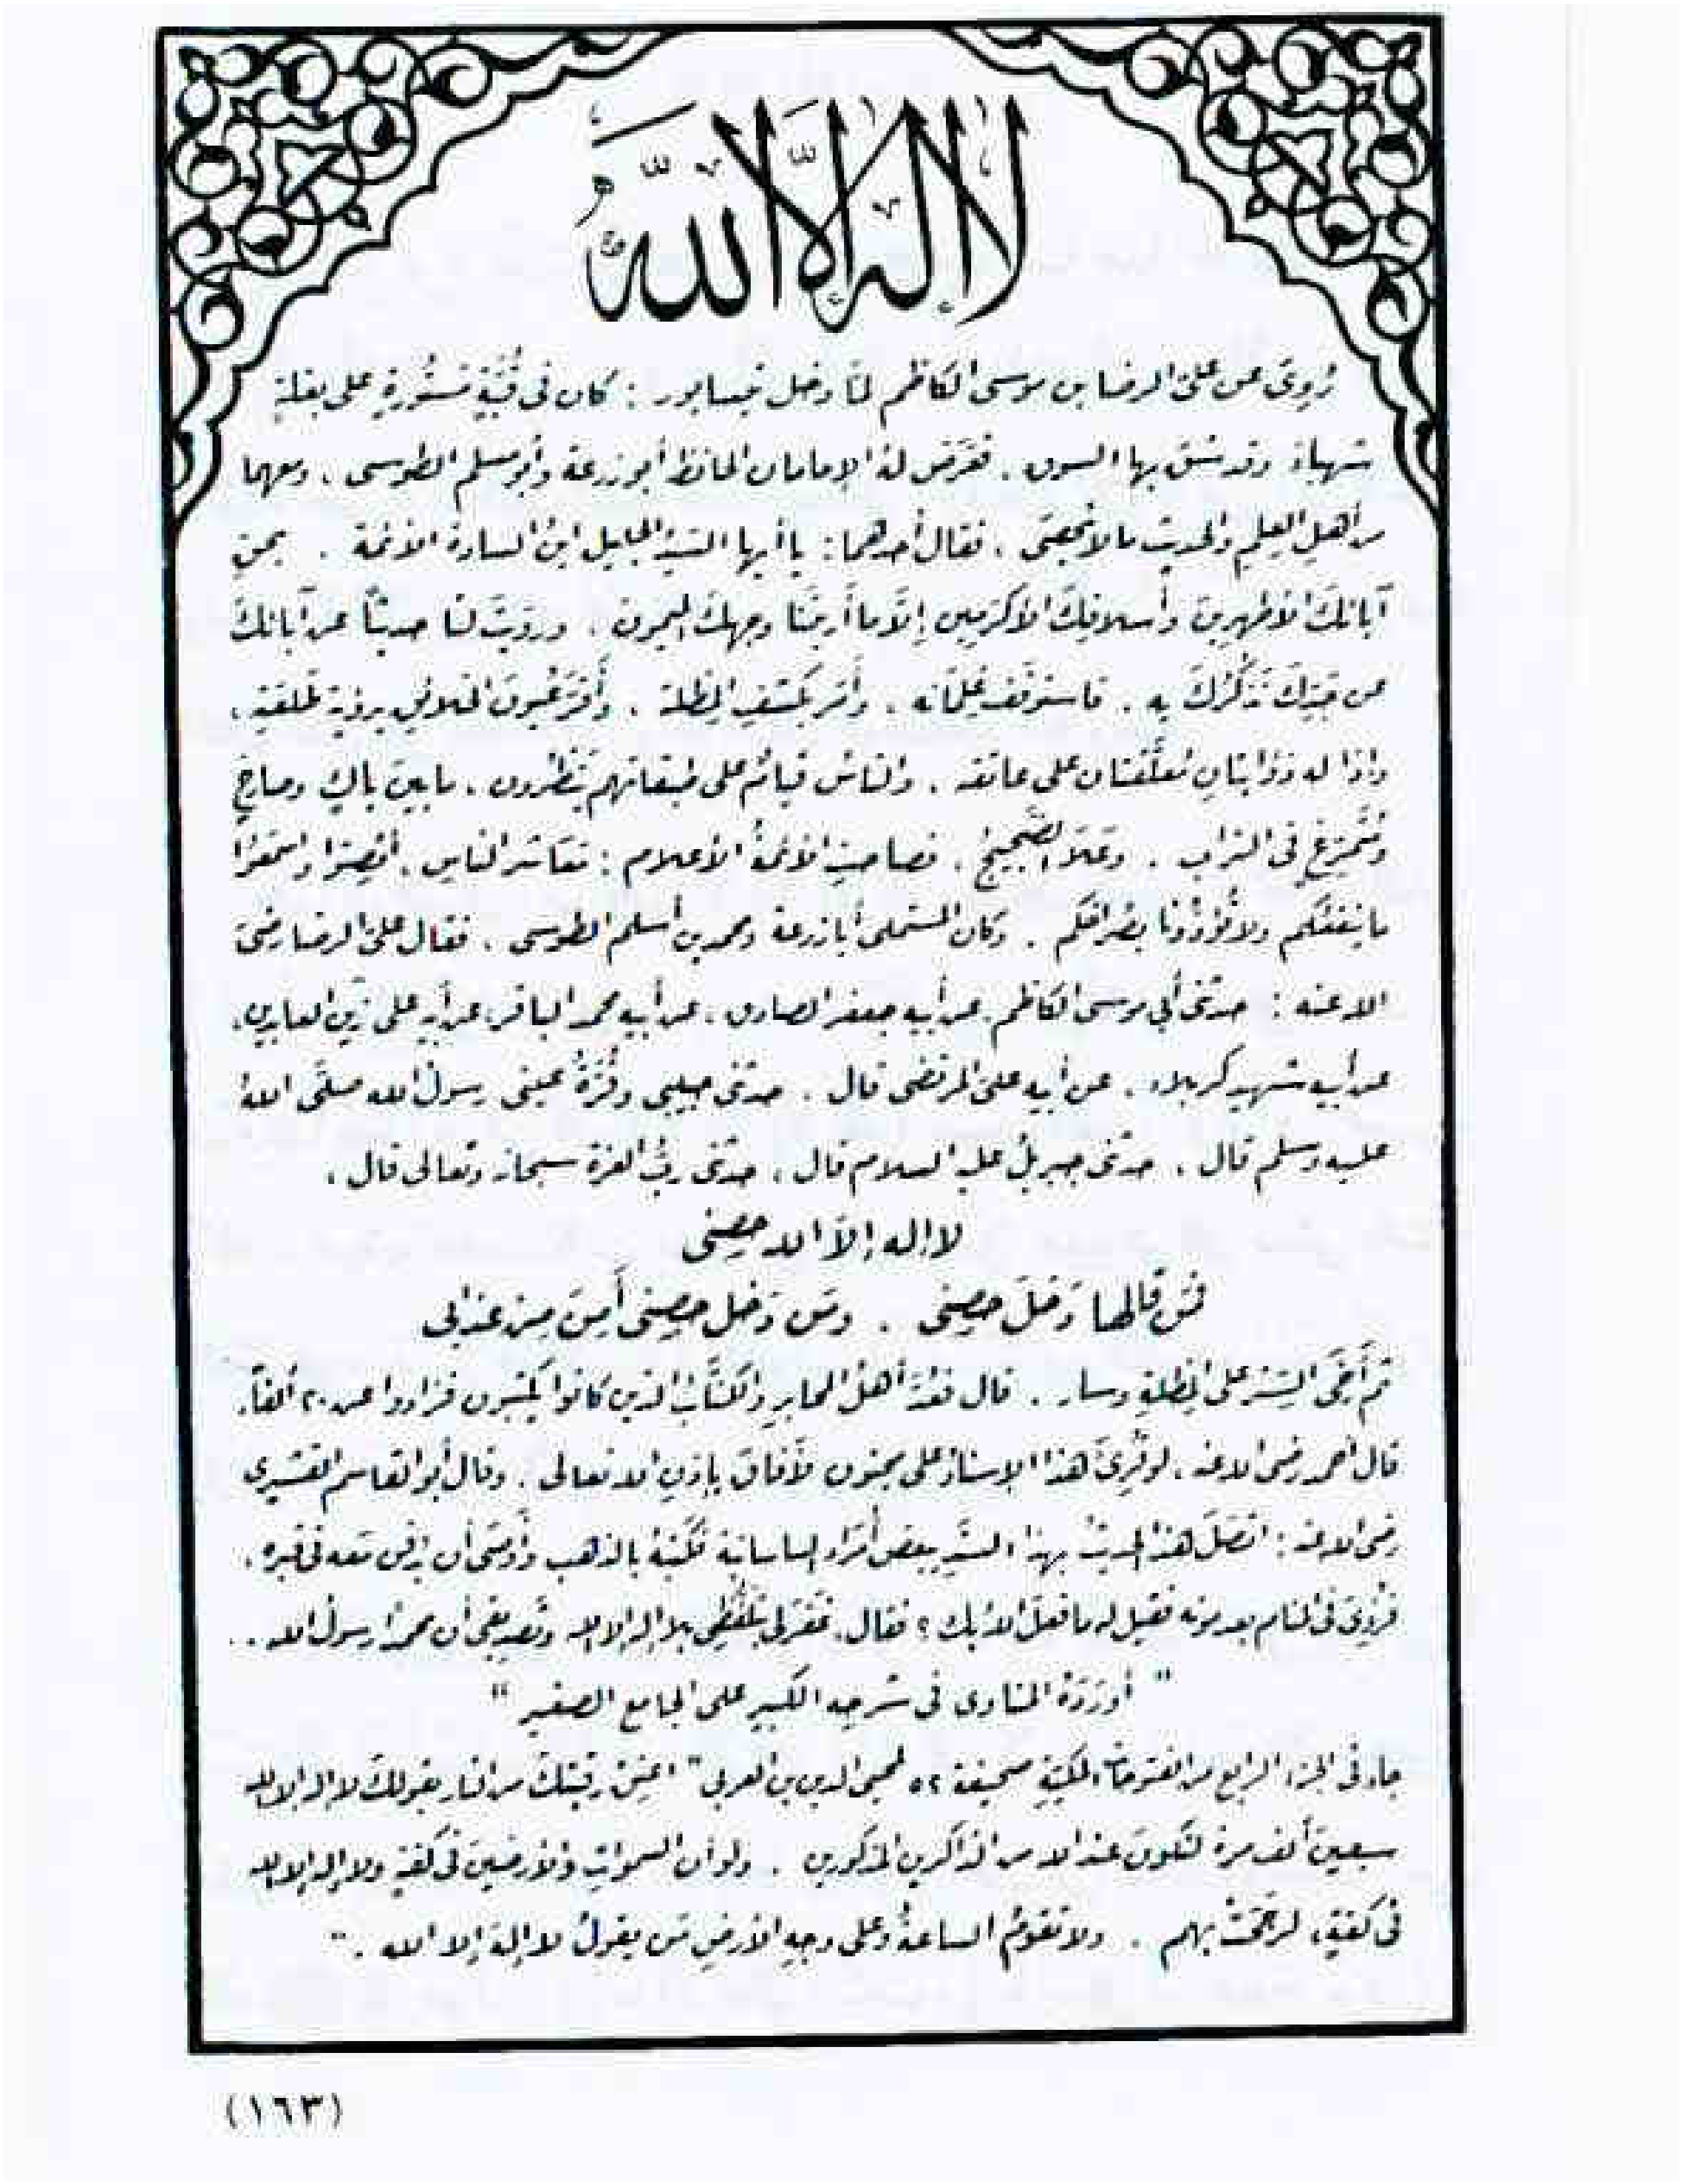 لا إله إلا الله
رُوِىَ عن علىّ الرضا بن موسى الكاظم لمّا دخل نيسابور : كان فى قُبَّةٍ مَستُورةٍ على بغلةٍ
شهباءَ وقد شق بها السوق . فعَرَضَ لهُ الإمامان الحافظ أبو زرعة وأبو مسلم الطوسى ، ومعهما
من أهلِ العِلمِ والحديث ما لا يُحصَى ، فقال أحدهما : يا أيها السَيّدُ الجليل ابنُ السادة الأئمة . بحق
آبائكَ الأطهرين وأسلافِكَ الأكرمين إلَّا ما أريتَنا وجهكَ الميمون ، ورويتَ لنا حديثاً عن آبائكَ
عن جَدِّكَ نَذكُركَ به . فاستوقف غلمانه ، وأمر بكشفِ المظلة ، وأقَرَّ عُيونَ الخلائقِ برؤية طلعَتِهِ ،
وإذا له ذؤابتان مُعلّقتان على عاتقه . والناسُ قيامٌ على طبقاتهم يَنظُرون ، ما بينَ باكٍ وصارخٍ
ومُتَمَرِّغٍ فى التراب . وعَلَا الضجيجُ . فصاحتِ الأئمةُ الأعلام : معاشر الناس ، أنصِتوا واسمَعُوا
ما ينفَعُكم ولا تُؤذُونا بصُراخكم . وكان المستملى أبا زرعة ومحمد بن أسلم الطوسى . فقال علىّ الرضا رضىَ
الله عنه : حدثنى أبى موسى الكاظم ، عن أبيه جعفر الصادق ، عن أبيه محمد الباقر ، عن أبيه على زين العابدين ،
عن أبيه شهيد كربلاء ، عن أبيه علىّ المرتضى قال . حدثنى حبيبى وقُرَّةُ عينى رسولُ الله صلّى اللهُ
عليه وسلم قال ، حدثنى جبريلُ عليه السلام قال ، حدثنى ربُّ العزة سبحانه وتعالى قال ،
لا إله إلّا الله حِصنِى
فمَن قالها دَخَلَ حِصنِى . ومَن دَخل حِصنِى أَمِنَ مِن عذابى
ثم أَرخَى السِترَ على المظلةِ وسار . قال فعُدَّ أهلُ المحابرِ والكُتَّابُ الذين كانوا يكتبون فزادوا عن ٢٠ ألفاً .
قال أحمد رضى الله عنه ، لو قُرِئَ هذا الإسنادُ على مجنون لأفاقَ بإذنِ الله تعالى . وقال أبو القاسم القشيرى
رضى الله عنه : اتصَلَ هذا الحديثُ بهذا السَندِ ببعضِ أُمَرَاءِ الساسانية فكتَبَهُ بالذهب وأوصَى أن يُدفن مَعه فى قبره .
فرُؤِىَ فى المنام بعد موته فقيل له ما فعلَ اللهُ بكَ ؟ فقال . غفر لى بتلفُّظِى بلا إله إلا الله وتصديقى أن محمداً رسولُ الله ..
" أوردَهُ المناوى فى شرحه الكبير على الجامع الصغير "
جاء فى الجزء الرابع من الفتوحات المكية صحيفة ٥٢ لمحيى الدين بن العربى " اعتِق رقبتكَ من النار بقولك لا إله إلا الله
سبعينَ ألف مرة لتكونَ عند الله من الذاكرين المذكورين . ولو أن السموات والأرضين فى كفةٍ ولا إله إلا الله
فى كفةٍ ، لرجَحَتْ بهم . ولا تقومُ الساعةُ وعلى وجهِ الأرضِ مَن يقولُ لا إلهَ إلا الله . "
(١٦٣)